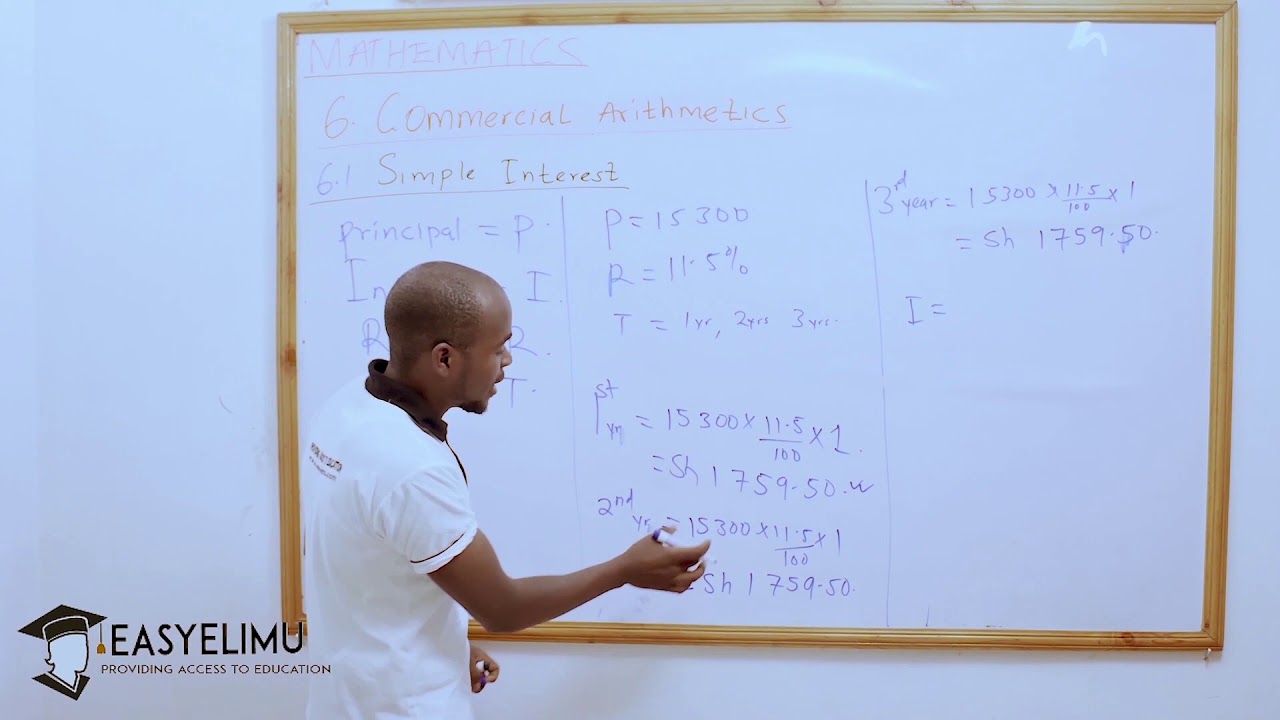 MATHEMATICS
6. Commercial Arithmetics
6.1 Simple Interest
principal = P.
In I.
R R.
T.
P = 15 300
R = 11.5%
T = 1yr, 2yrs 3yrs.
1st yr = 15 300 × 11.5/100 × 1.
= Sh 1 759.50.
2nd yr = 15300 × 11.5/100 × 1
= Sh 1 759.50.
3rd year = 15300 × 11.5/100 × 1
= Sh 1759.50.
I =
EASYELIMU
PROVIDING ACCESS TO EDUCATION